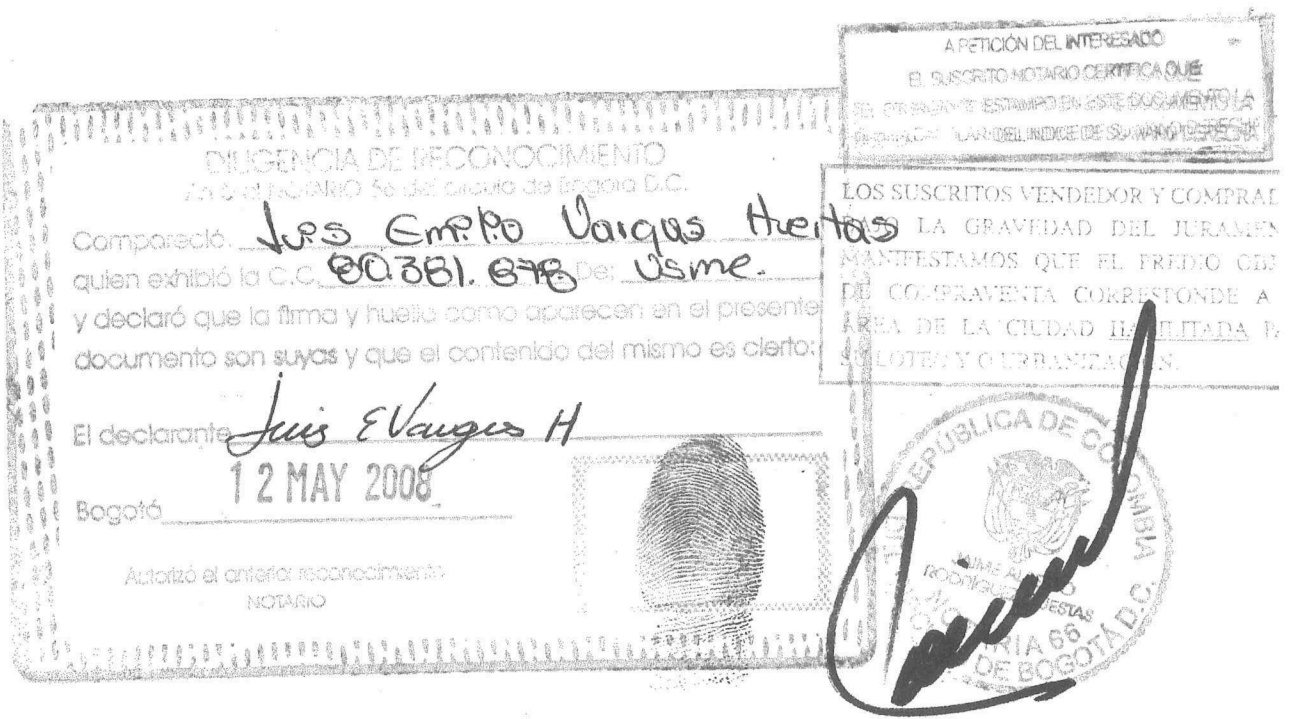 A PETICIÓN DEL INTERESADO
EL SUSCRITO NOTARIO CERTIFICA QUE:
ESTAMPO EN ESTE DOCUMENTO LA
DEL INDICE DE SU MANO DERECHA
DILIGENCIA DE RECONOCIMIENTO
NOTARIO 66 del circulo de Bogotá D.C.
Compareció: Luis Emilio Vargas Huertas
quien exhibió la C.C. De: Usme.
y declaró que la firma y huella como aparecen en el presente
documento son suyas y que el contenido del mismo es cierto:
El declarante Luis E Vargas H
12 MAY 2008
Bogotá
Autorizó el anterior reconocimiento
NOTARIO
LOS SUSCRITOS VENDEDOR Y COMPRAD
BAJO LA GRAVEDAD DEL JURAMEN
MANIFESTAMOS QUE EL PREDIO OBJ
DE COMPRAVENTA CORRESPONDE A
AREA DE LA CIUDAD HABILITADA P
LOTEO Y O URBANIZACION.
REPÚBLICA DE COLOMBIA
JAIME
RODRÍGUEZ CUESTAS
NOTARIA 66
DE BOGOTÁ D.C.